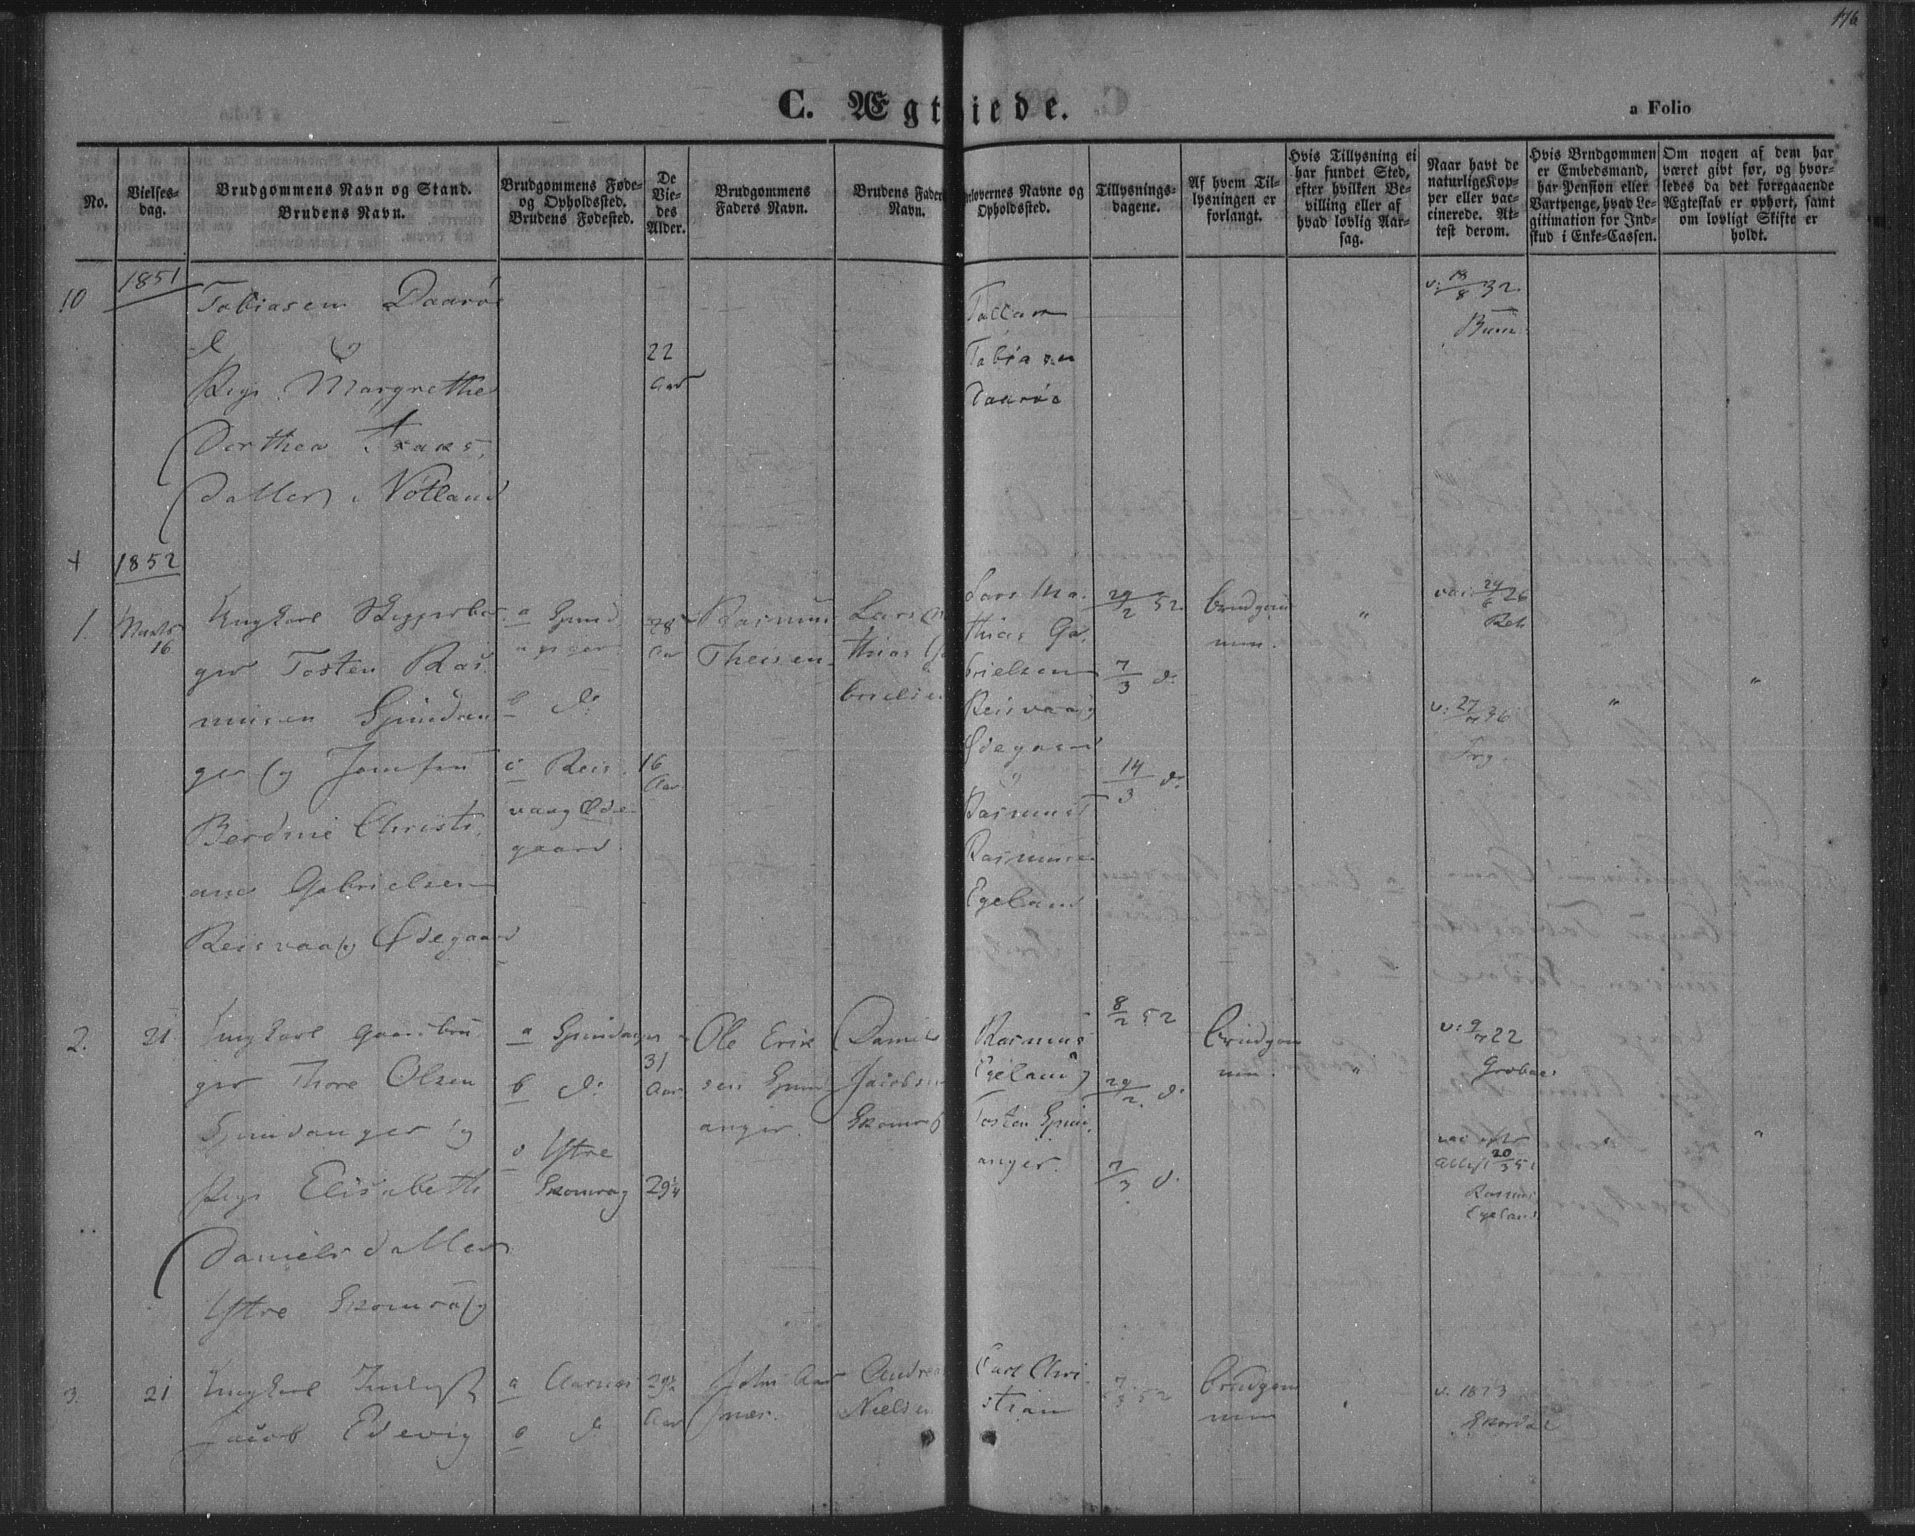 176
C. Ægtviede.
a Folio
No.
Vielses-
dag.
Brudgommens Navn og Stand.
Brudens Navn.
Brudgommens Føde-
og Opholdssted.
Brudens Fødested.
De
Vie-
des
Alder.
Brudgommens
Faders Navn.
Brudens Fader
Navn.
rlovernes Navne og
Opholdssted.
Tillysnings-
dagene.
Af hvem Til-
lysningen er
forlangt.
Hvis Tillysning ei
har fundet Sted,
efter hvilken Be-
villing eller af
hvad lovlig Aar-
sag.
Naar havt de
naturlige Kop-
per eller vac-
cinerede. At-
test derom.
Hvis Brudgommen
er Embedsmand,
har Pension eller
Vartpenge, hvad Le-
gitimation for Ind-
skud i Enke-Cassen.
Om nogen af dem har
været givt før, og hvor-
ledes da det forrgaaende
Ægteskab er ophørt, samt
om lovligt Skifte er
holdt.
10
1851
Tobiasen Daarøe
&
Pige Margrethe
Dorthea Isaks
datter Nøtland
22
Aar
Tallak
Tobiasen
Daarøe
v: 18/8 32
1852
1.
Marts
16
Ungkarl Skipperbor
ger Tosten Ras
musen Spindan
ger og Jomfru
Berdine Christi
ane Gabrielsen
Reisvaag Ødegaard
a Spind
anger
b d:
c Reis
vaag Øde
gaard
28
Aar
16
Aar
Rasmus
Theisen
Lars Ma
thias Ga
brielsen
Lars Ma
thias Ga
brielsen
Reisvaag
Ødegaard
og
Rasmus
Rasmusen
Egeland
29/2 52
7/3 d:
14/3 d:
Brudgom
men.
"
vac: 24/8 26
v: 27/ 36
"
"
2.
21
Ungkarl Gaardbru
ger Thore Olsen
Spindanger og
Pige Elisabeth
Danielsdatter
Ystre Skomrag
a Spindanger
b d:
c Ystre
Skomrag
31
Aar
29¼
Ole Erik
sen Spind
anger.
Daniel
Jacobsen
Skomrag
Rasmus
Egeland og
Tosten Spind
anger.
8/2 52
29/2 d:
7/3 d:
Brudgom
men.
"
v: 9/ 22
Grobae
vac efter
Attest 20/3 51
Rasmus
Egeland
"
3.
21
Ungkarl
Jacob Edevig
a Aarnes
b d
29½
Aar
John Aar
nes.
Andreas
Nielsen
Carl Chri
stian
7/3 52
Brudgom
men
v. 1823